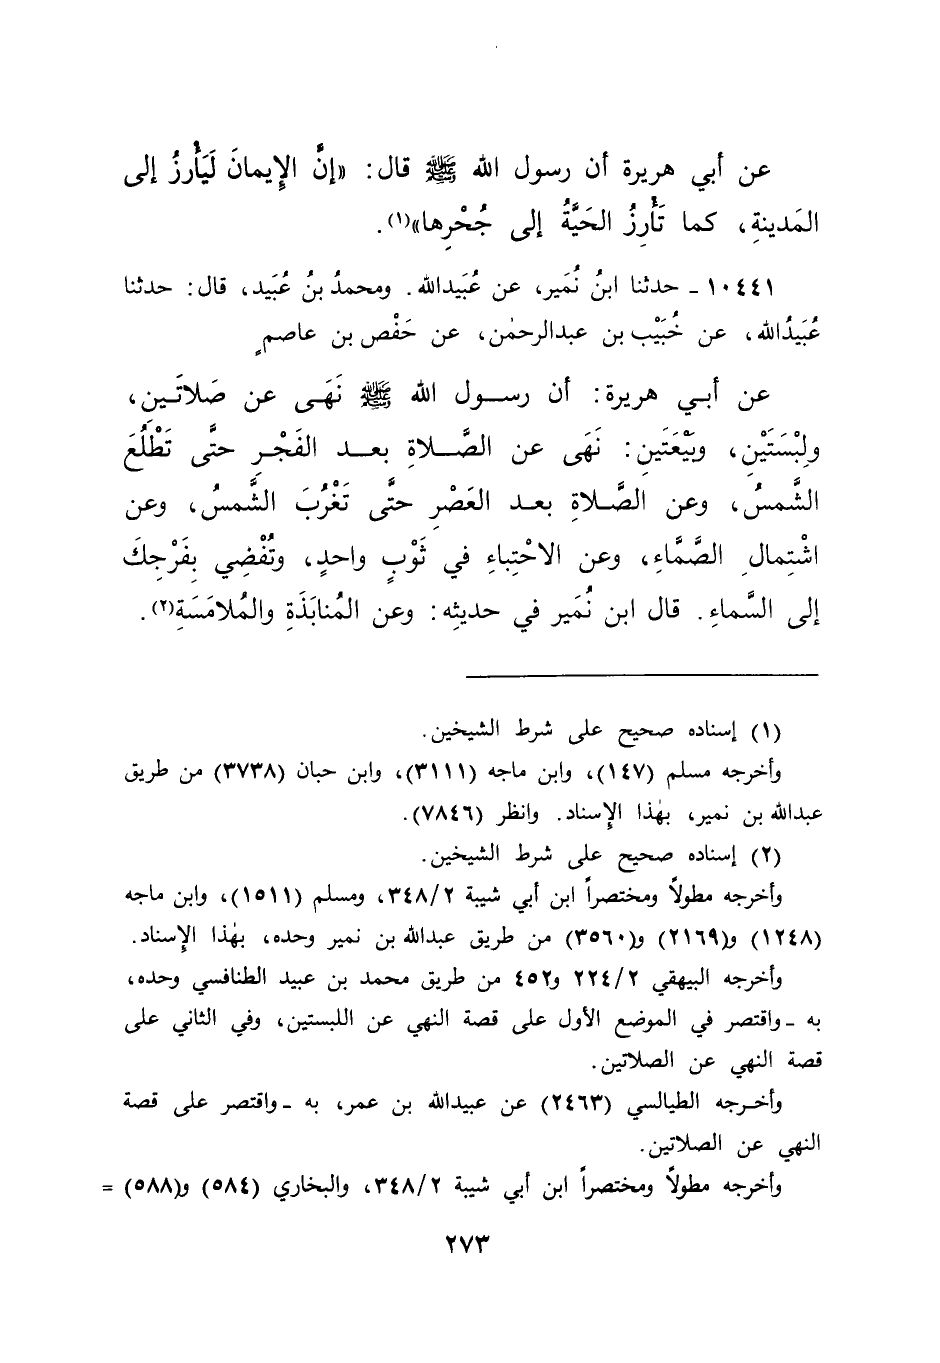 عن أبي هريرة أن رسول الله ﷺ قال: «إنَّ الإِيمانَ لَيَأْرِزُ إلى
المَدينةِ، كما تَأْرِزُ الحَيَّةُ إلى جُحْرِها»(١).
١٠٤٤١ - حدثنا ابنُ نُمَير، عن عُبَيدالله. ومحمدُ بنُ عُبَيد، قال: حدثنا
عُبَيدُالله، عن خُبَيْب بن عبدالرحمٰن، عن حَفْص بن عاصمٍ
عن أبي هريرة: أن رسول الله ﷺ نَهَى عن صَلاتَينِ،
ولِبْسَتَيْنِ، وبَيْعَتَينِ: نَهَى عن الصَّلاةِ بعد الفَجْرِ حتَّى تَطْلُعَ
الشَّمسُ، وعن الصَّلاةِ بعد العَصْرِ حتَّى تَغْرُبَ الشَّمسُ، وعن
اشْتِمالِ الصَّمَّاءِ، وعن الاحْتِباءِ في ثَوْبٍ واحدٍ، وتُفْضِي بفَرْجِكَ
إلى السَّماءِ. قال ابن نُمَير في حديثِه: وعن المُنابَذَةِ والمُلامَسَةِ(٢).
(١) إسناده صحيح على شرط الشيخين.
وأخرجه مسلم (١٤٧)، وابن ماجه (٣١١١)، وابن حبان (٣٧٣٨) من طريق
عبدالله بن نمير، بهٰذا الإِسناد. وانظر (٧٨٤٦).
(٢) إسناده صحيح على شرط الشيخين.
وأخرجه مطولاً ومختصراً ابن أبي شيبة ٣٤٨/٢، ومسلم (١٥١١)، وابن ماجه
(١٢٤٨) و(٢١٦٩) و(٣٥٦٠) من طريق عبدالله بن نمير وحده، بهٰذا الإِسناد.
وأخرجه البيهقي ٢٢٤/٢ و٤٥٢ من طريق محمد بن عبيد الطنافسي وحده،
به - واقتصر في الموضع الأول على قصة النهي عن اللبستين، وفي الثاني على
قصة النهي عن الصلاتين.
وأخرجه الطيالسي (٢٤٦٣) عن عبيدالله بن عمر، به - واقتصر على قصة
النهي عن الصلاتين.
وأخرجه مطولاً ومختصراً ابن أبي شيبة ٣٤٨/٢، والبخاري (٥٨٤) و(٥٨٨) =
٢٧٣